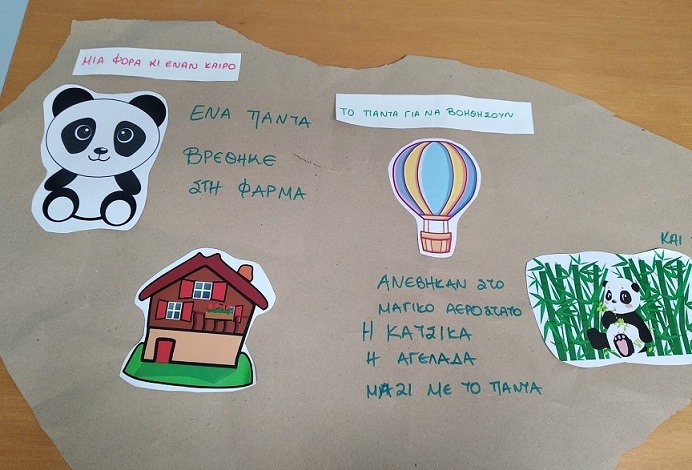 ΜΙΑ ΦΟΡΑ ΚΙ ΕΝΑΝ ΚΑΙΡΟ
ΕΝΑ ΠΑΝΤΑ
ΒΡΕΘΗΚΕ
ΣΤΗ ΦΑΡΜΑ
ΤΟ ΠΑΝΤΑ ΓΙΑ ΝΑ ΒΟΗΘΗΣΟΥΝ
ΑΝΕΒΗΚΑΝ ΣΤΟ
ΜΑΓΙΚΟ ΑΕΡΟΣΤΑΤΟ
Η ΚΑΤΣΙΚΑ
Η ΑΓΕΛΑΔΑ
ΜΑΖΙ ΜΕ ΤΟ ΠΑΝΤΑ
ΚΑΙ